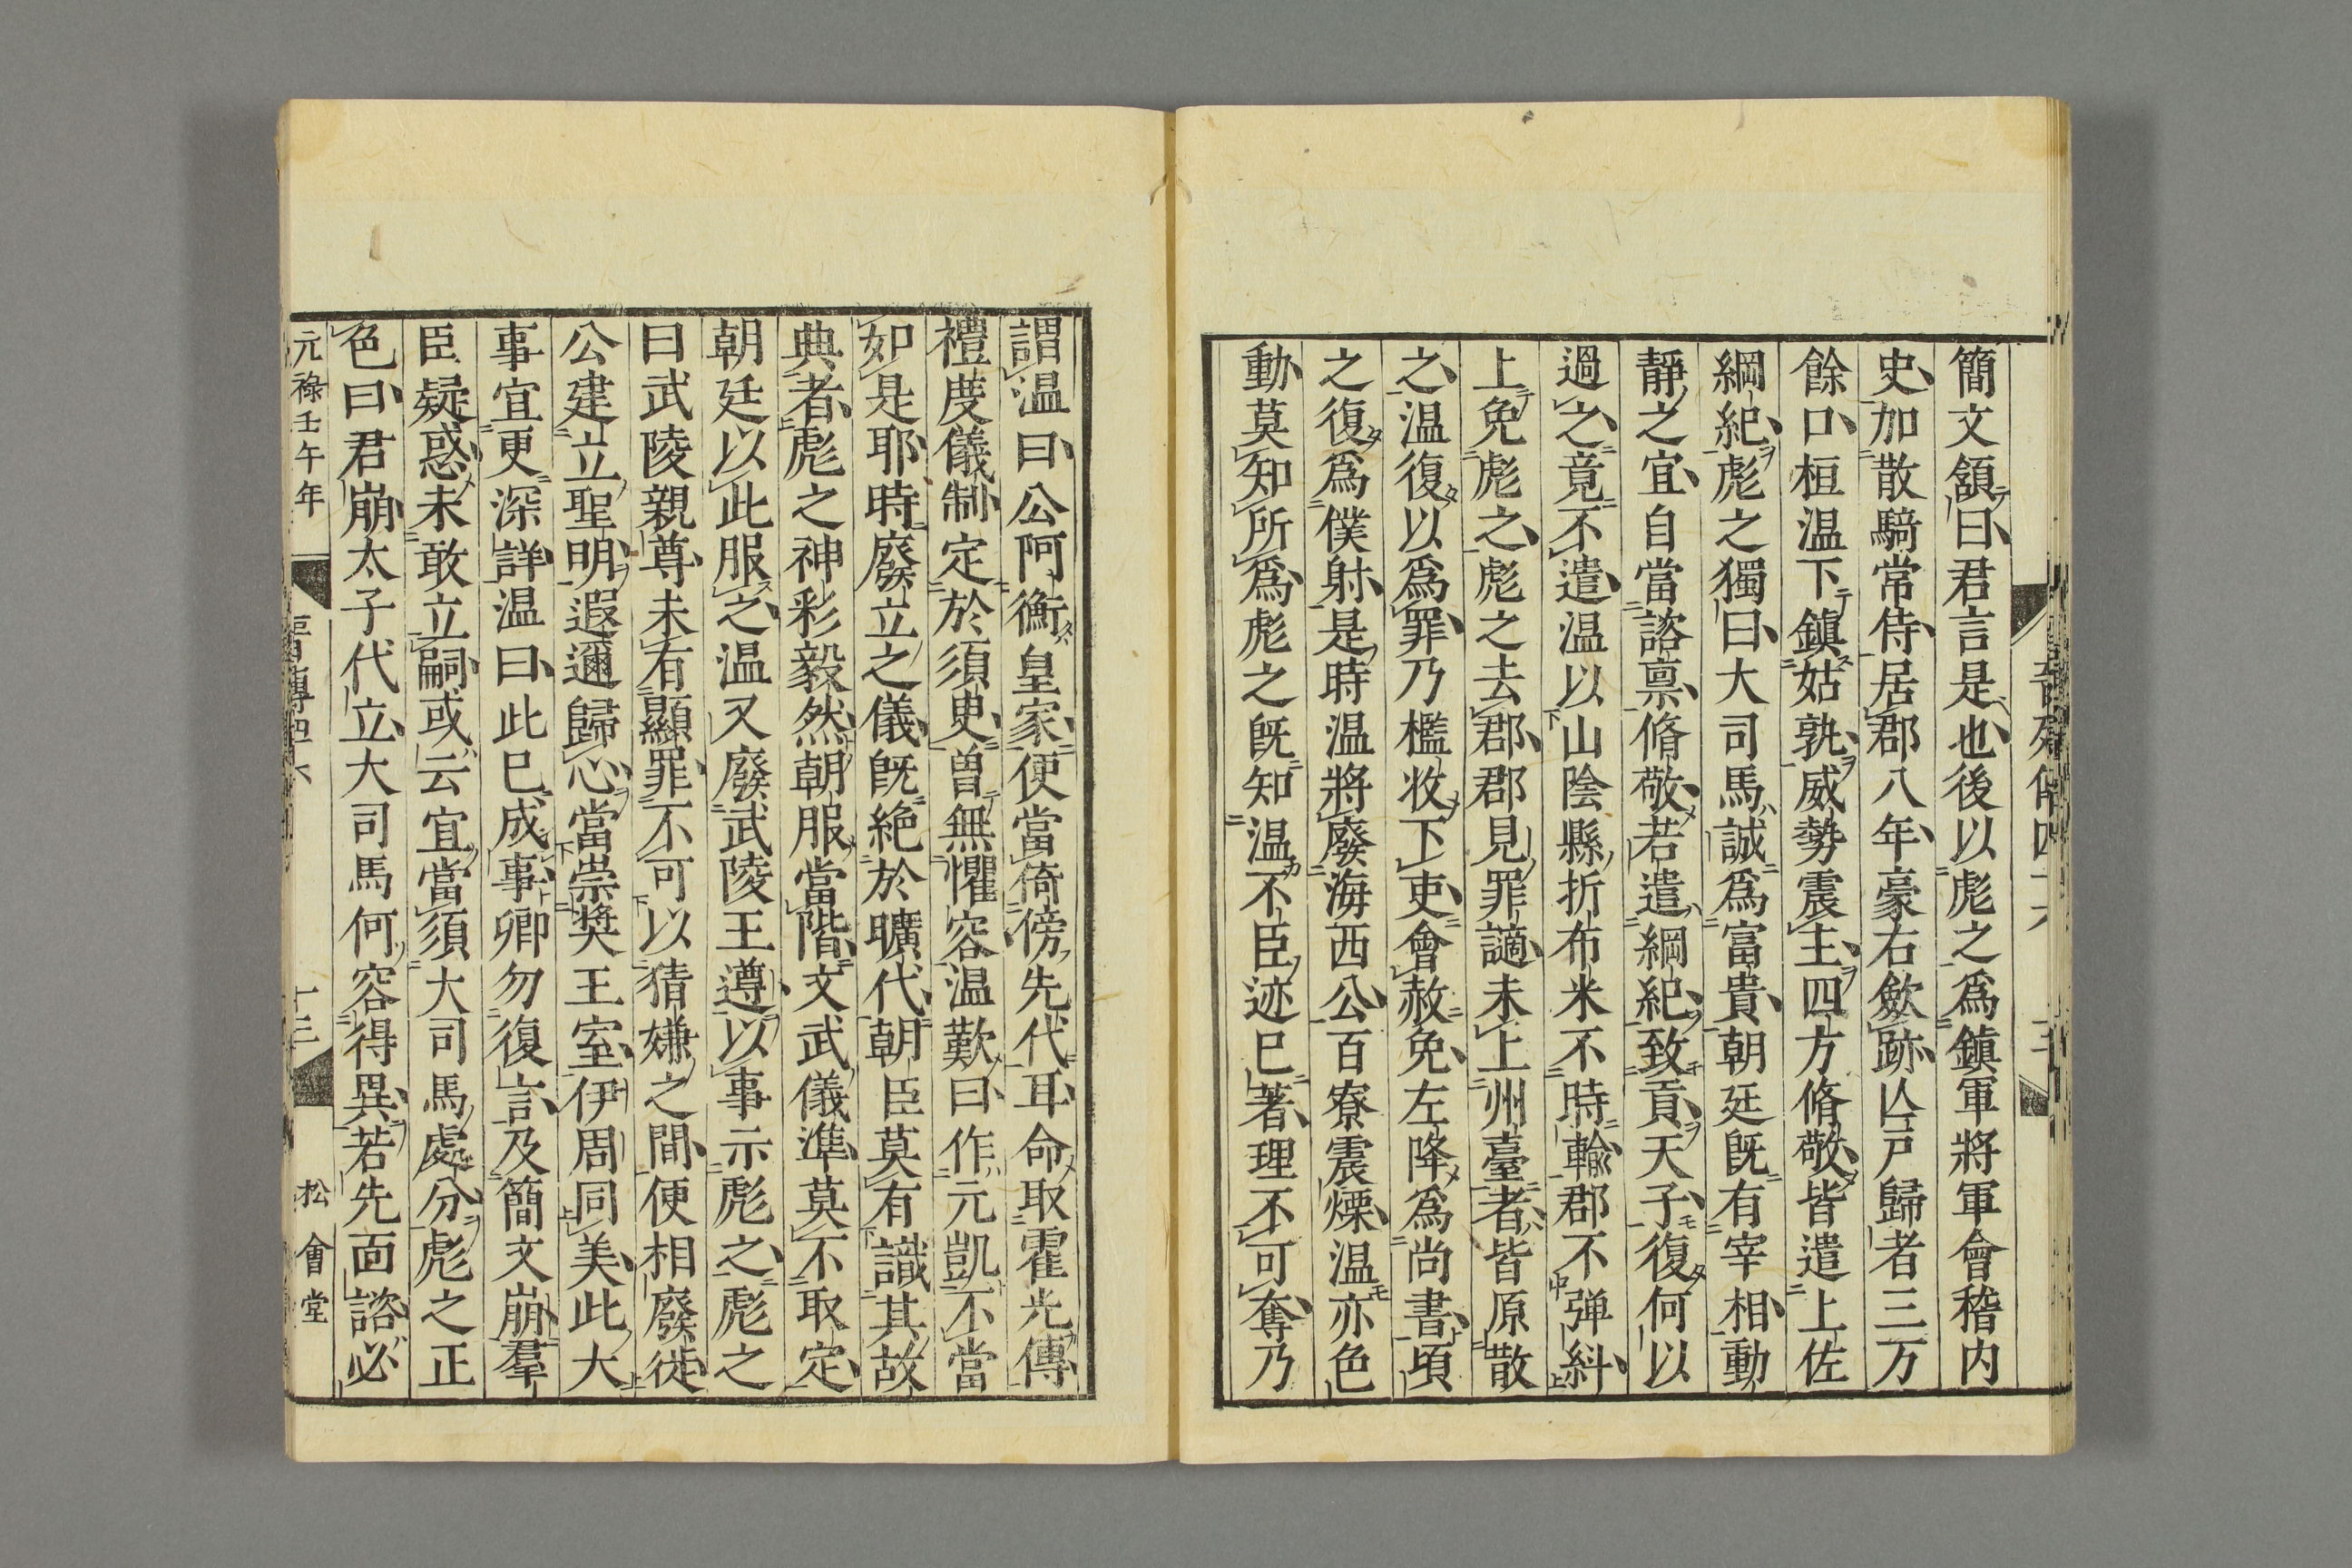 簡文領曰君言是也後以彪之爲鎮軍將軍會稽内
史加散騎常侍居郡八年豪右歛跡亾戸歸者三万
餘口桓温下鎮姑孰威勢震主四方脩敬皆遣上佐
綱紀彪之獨曰大司馬誠爲富貴朝廷既有宰相動
靜之宜自當諮禀脩敬若遣綱紀致貢天子復何以
過之竟不遣温以山陰縣折布米不時輸郡不弾糾
上免彪之彪之去郡郡見罪謫未上州臺者皆原散
之温復以爲罪乃檻收下吏會赦免左降爲尚書頃
之復爲僕射是時温將廢海西公百寮震慄温亦色
動莫知所爲彪之既知温不臣迹已著理不可奪乃
謂温曰公阿衡皇家便當倚傍先代耳命取霍光傳
禮度儀制定於須臾曽無懼容温歎曰作元凱不當
如是耶時廢立之儀既絶於曠代朝臣莫有識其故
典者彪之神彩毅然朝服當階文武儀準莫不取定
朝廷以此服之温又廢武陵王遵以事示彪之彪之
曰武陵親尊未有顯罪不可以猜嫌之間便相廢徙
公建立聖明遐邇歸心當崇奬王室伊周同美此大
事宜更深詳温曰此已成事卿勿復言及簡文崩羣
臣疑惑未敢立嗣或云宜當須大司馬處分彪之正
色曰君崩太子代立大司馬何容得異若先面諮必
元祿壬午年
晉傳四十六
十三
松會堂